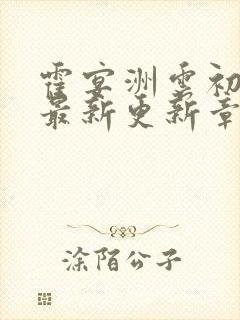 霍宴洲雪初
最新更新章
涂陌公子